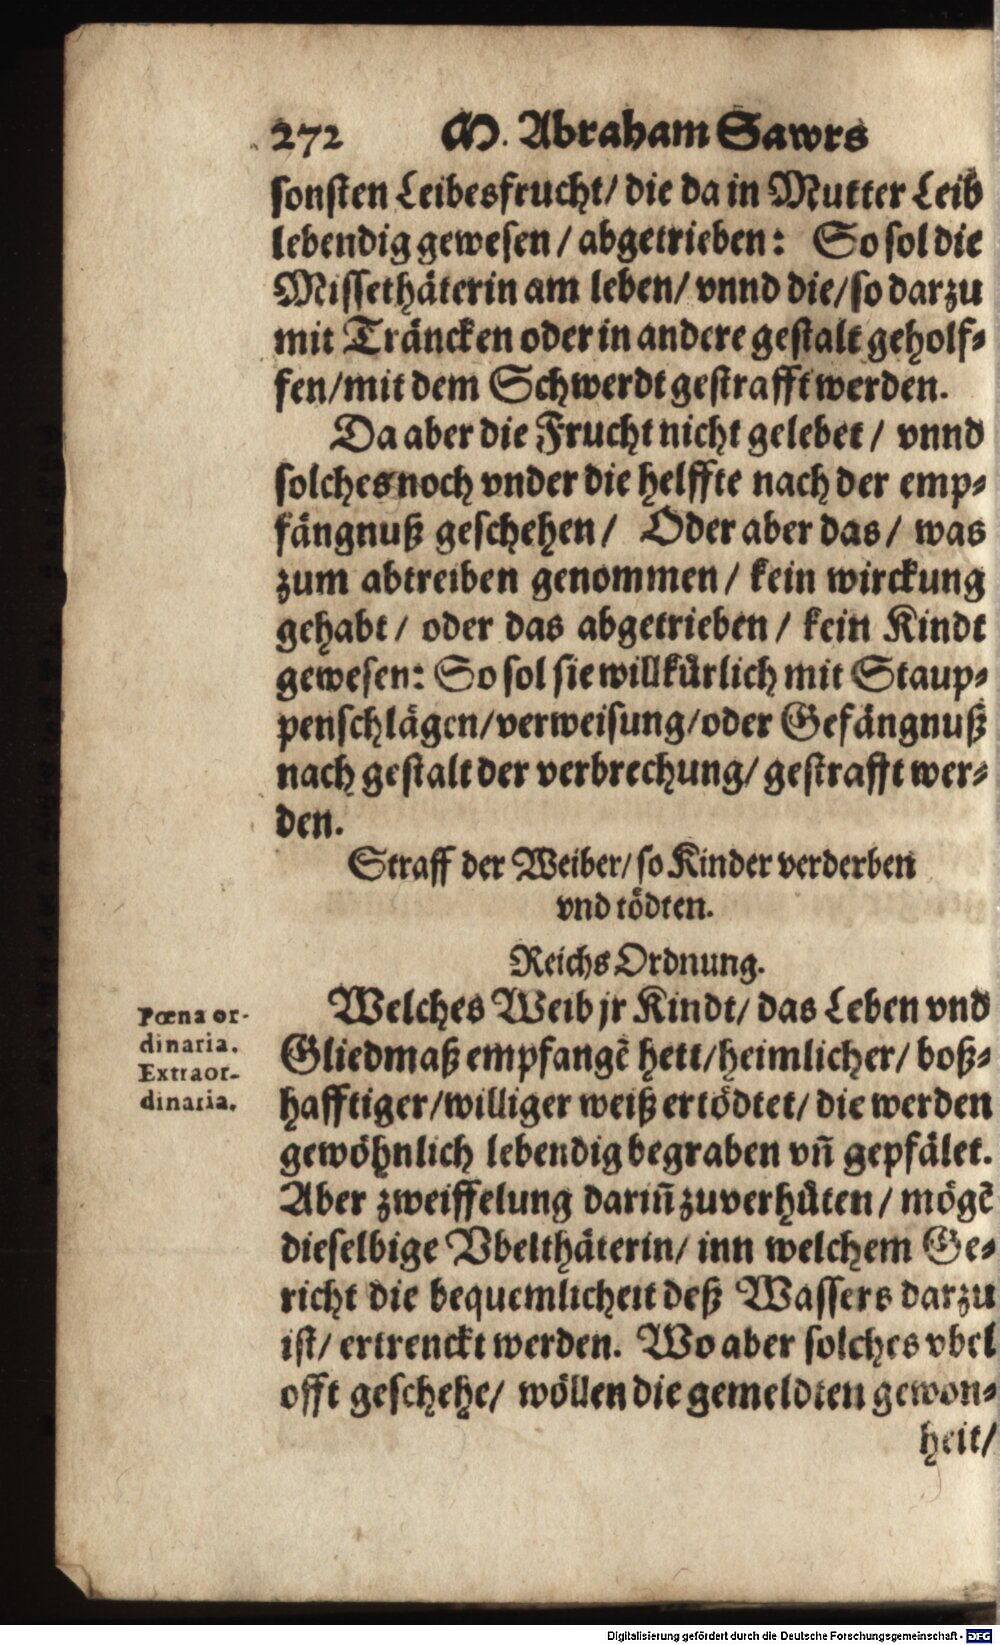 272 M. Abraham Sawrs
sonsten Leibesfrucht/ die da in Mutter Leib
lebendig gewesen / abgetrieben: So sol die
Missethäterin am leben/ vnnd die/so darzu
mit Träncken oder in andere gestalt geholf⸗
fen/mit dem Schwerdt gestrafft werden.
Da aber die Frucht nicht gelebet / vnnd
solches noch vnder die helffte nach der emp⸗
fängnuß geschehen/ Oder aber das/ was
zum abtreiben genommen/ kein wirckung
gehabt/ oder das abgetrieben/ kein Kindt
gewesen: So sol sie willkürlich mit Staup⸗
penschlägen/verweisung/oder Gefängnuß
nach gestalt der verbrechung/ gestrafft wer⸗
den.
Straff der Weiber/ so Kinder verderben
vnd tödten.
Reichs Ordnung.
Pœna or-
dinaria.
Extraor-
dinaria.
Welches Weib jr Kindt/ das Leben vnd
Gliedmaß empfangẽ hett/heimlicher/ boß⸗
hafftiger/williger weiß ertödtet/ die werden
gewöhnlich lebendig begraben vñ gepfälet.
Aber zweiffelung dariñ zuverhüten/ mögẽ
dieselbige Vbelthäterin/ inn welchem Ge⸗
richt die bequemlicheit deß Wassers darzu
ist/ ertrenckt werden. Wo aber solches vbel
offt geschehe/ wöllen die gemeldten gewon⸗
heit/
Digitalisierung gefördert durch die Deutsche Forschungsgemeinschaft - DFG